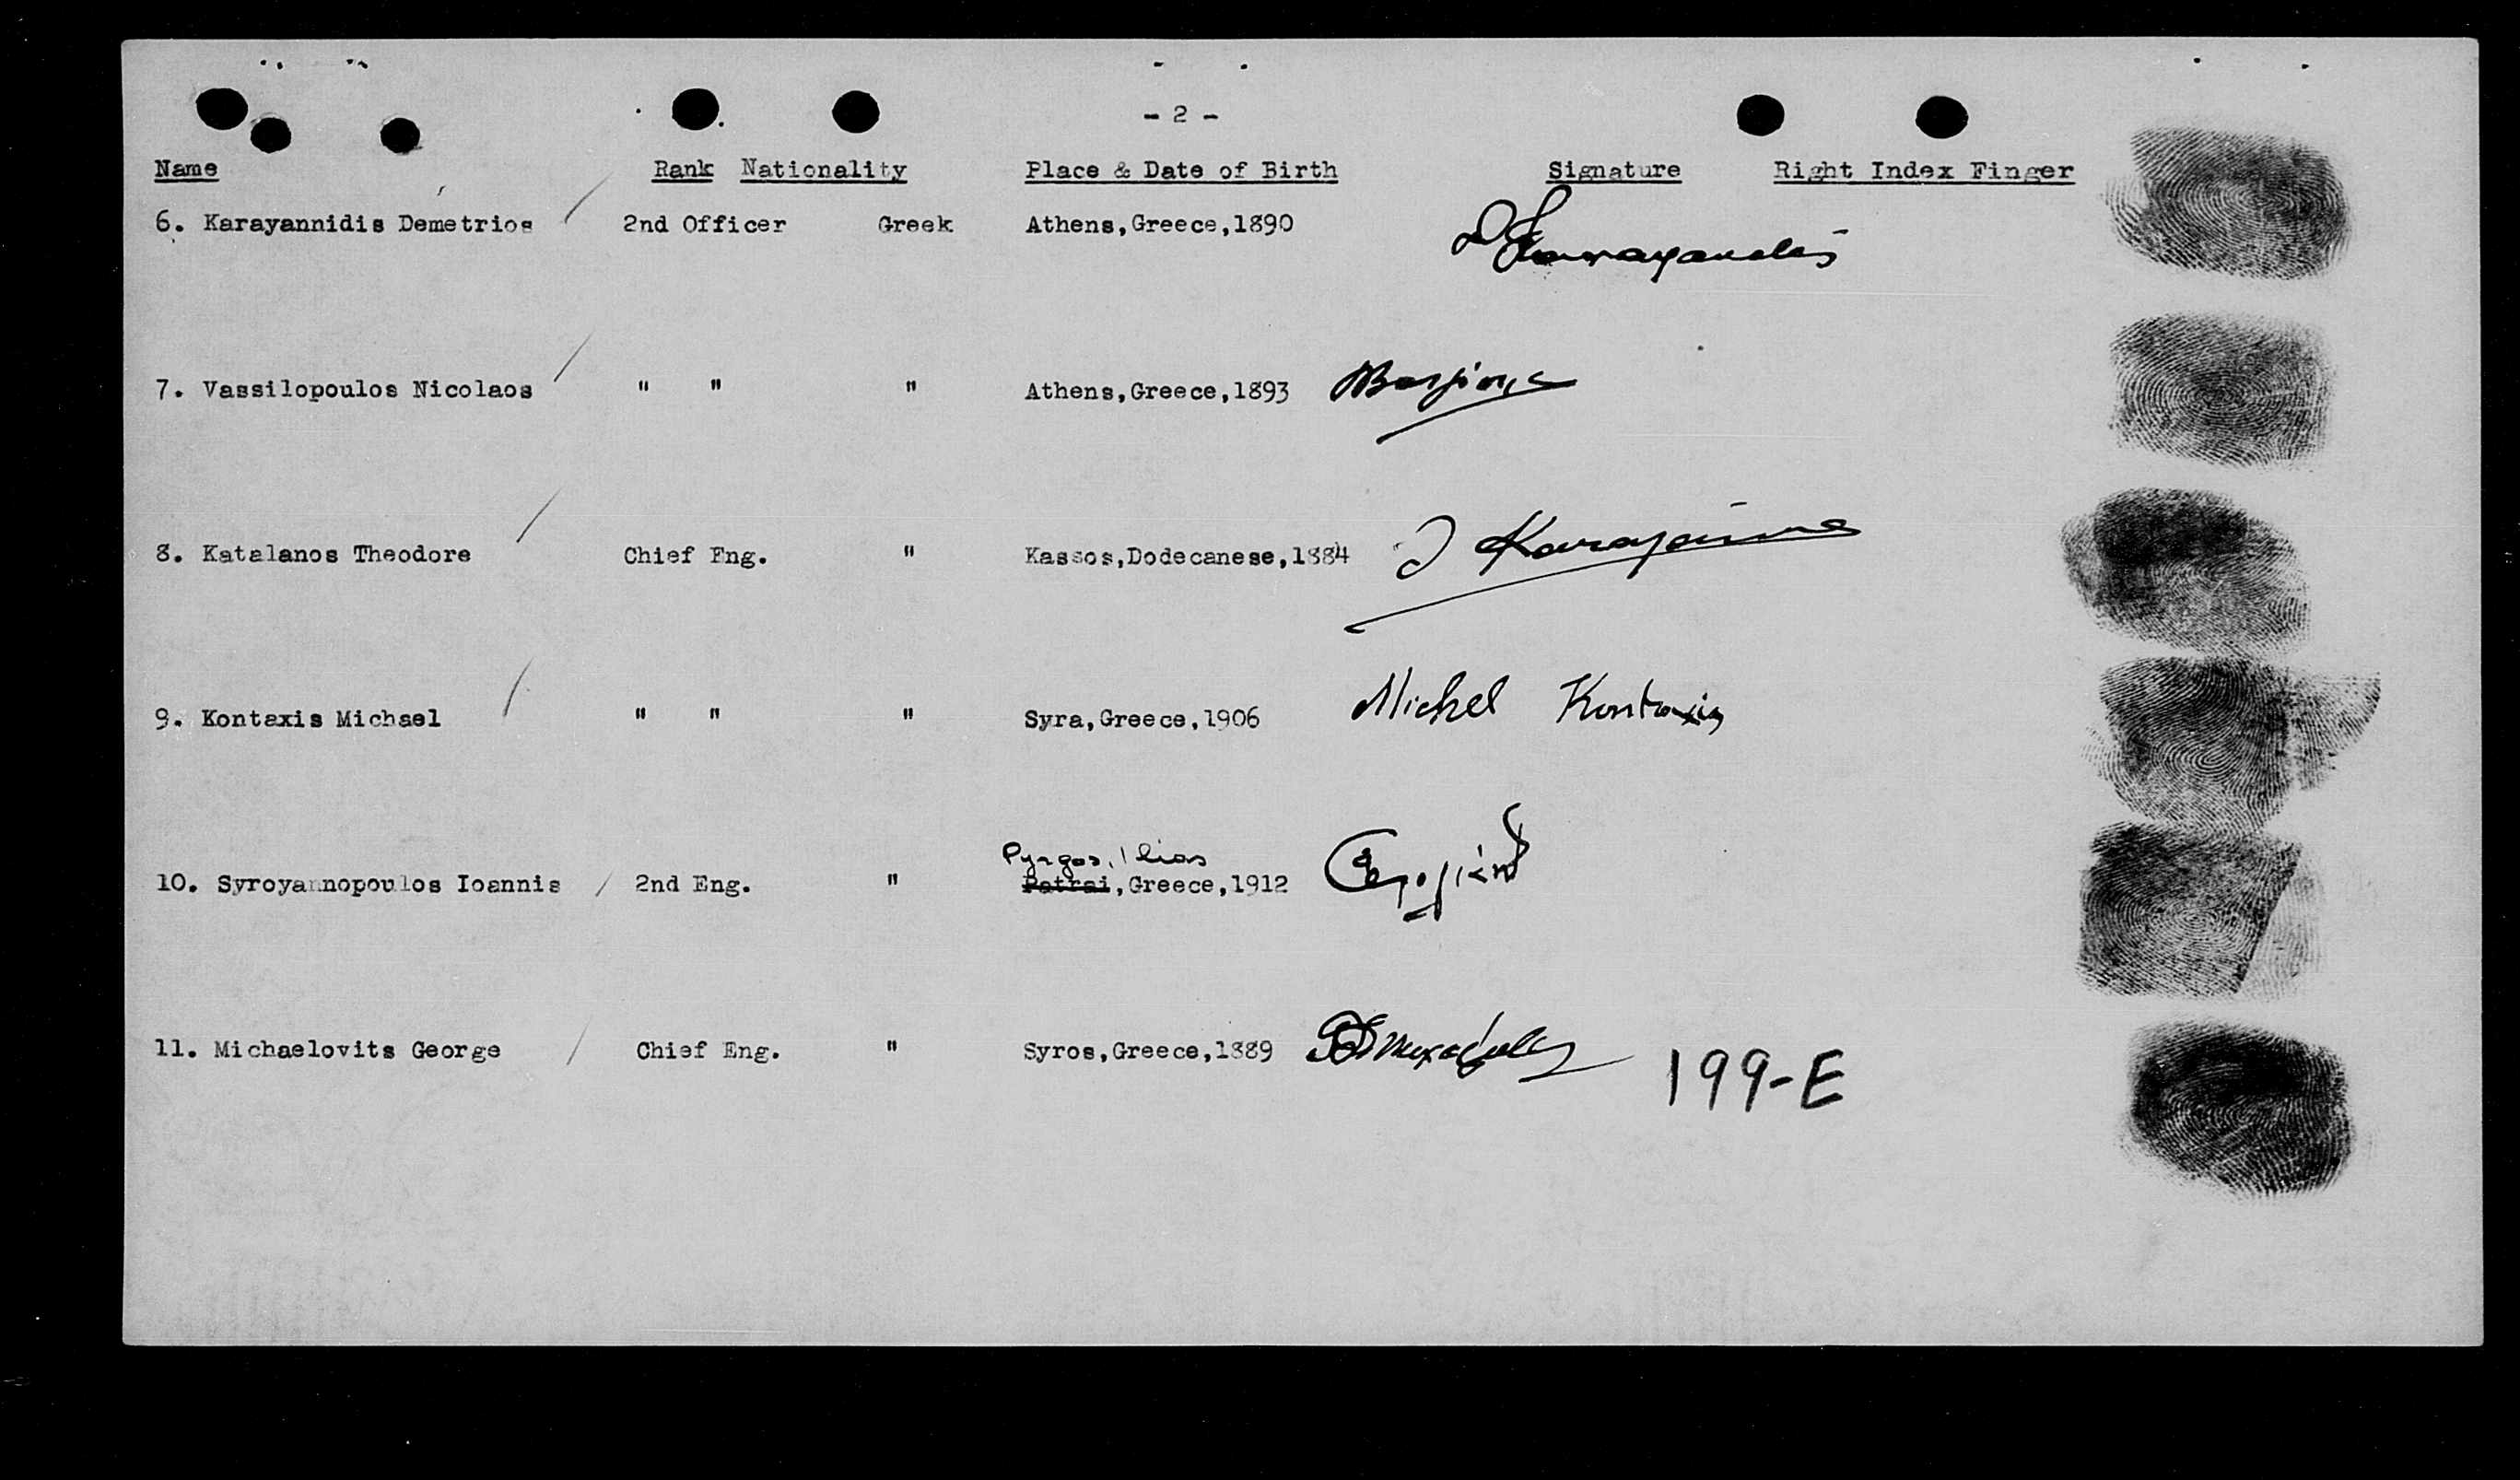 - 2 -
Name Rank Nationality Place & Date of Birth Signature Right Index Finger
6. Karayannidis Demetrios / 2nd Officer Greek Athens,Greece,1890
7. Vassilopoulos Nicolaos / " " " Athens,Greece,1893
8. Katalanos Theodore / Chief Eng. " Kassos,Dodecanese,1884
9. Kontaxis Michael / " " " Syra,Greece,1906 Michel Kontaxis
Pyrgos, Ilias
10. Syroyannopoulos Ioannis / 2nd Eng. " Patrai,Greece,1912
11. Michaelovits George / Chief Eng. " Syros,Greece,1889
199-E